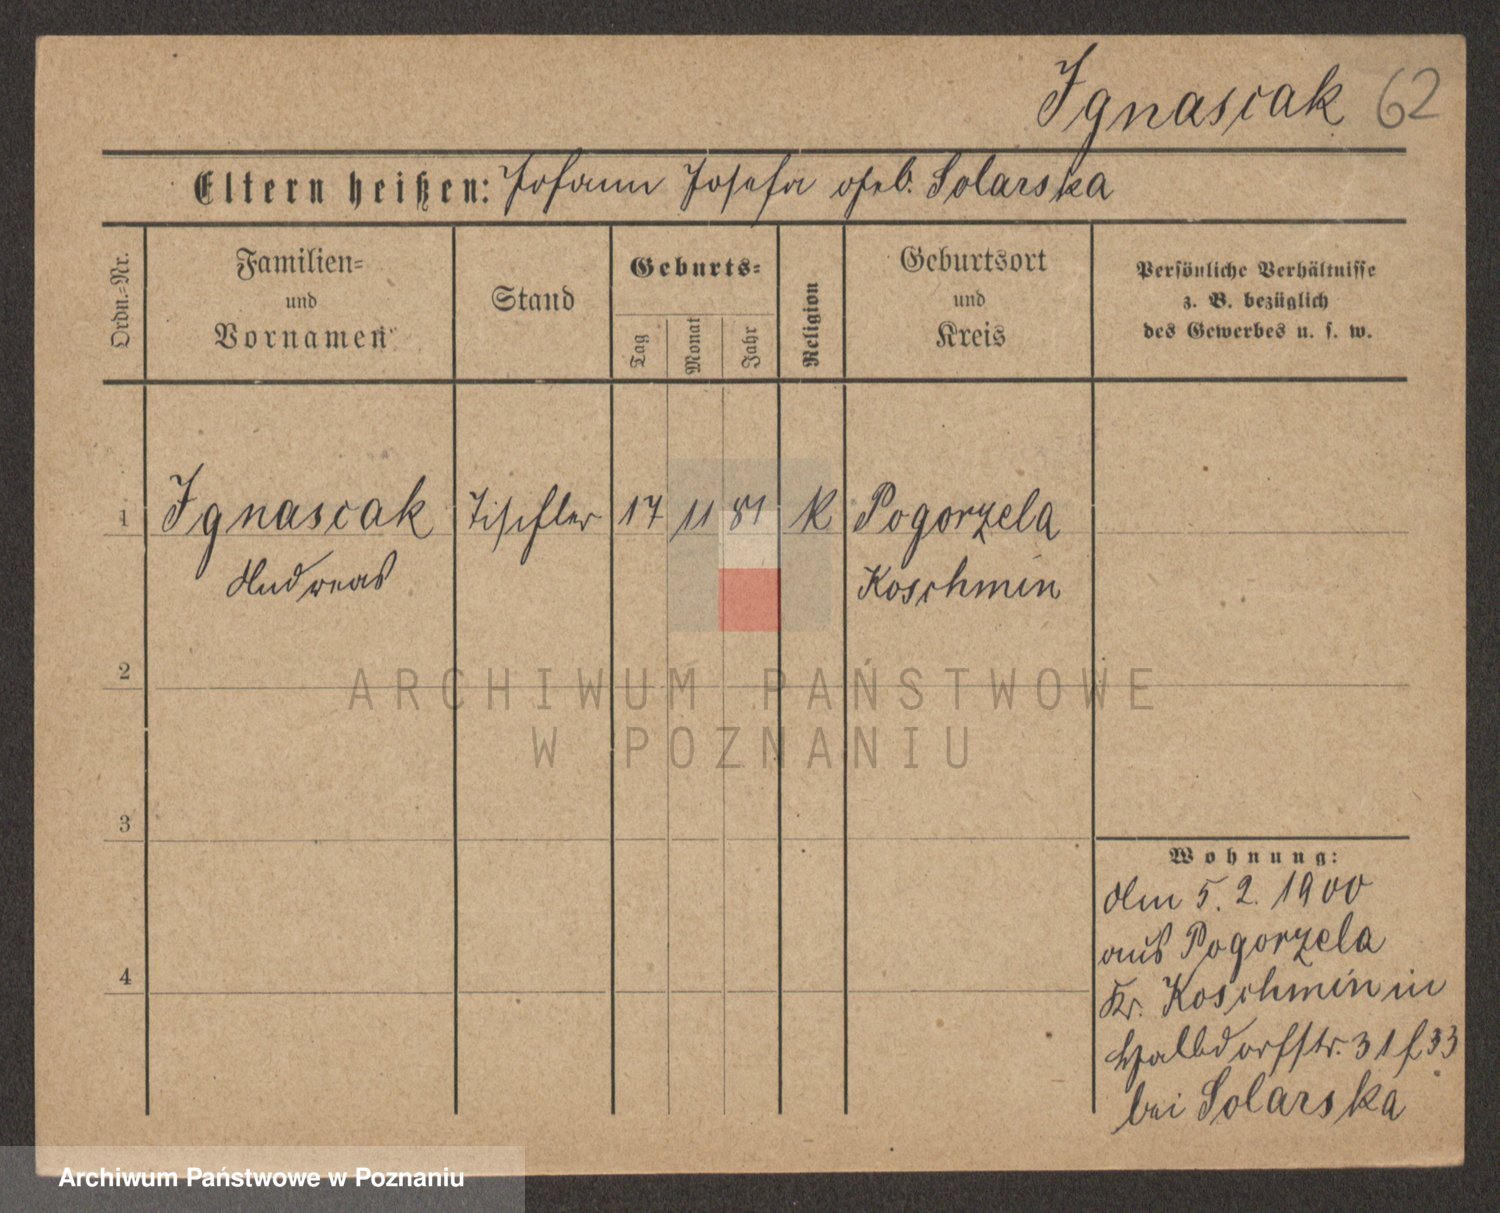 Ignascak 62
Eltern heißen: Johann Josefa geb. Solarska
Ordn.-Nr.
Familien-
und
Vornamen
Stand
Geburts-
Tag
Monat
Jahr
Religion
Geburtsort
und
Kreis
Persönliche Verhältnisse
z. B. bezüglich
des Gewerbes u. s. w.
1 Ignascak Tischler 17 11 81 K Pogorzela
Andreas Koschmin
2
ARCHIWUM PAŃSTWOWE
W POZNANIU
3
Wohnung:
Am 5. 2. 1900
aus Pogorzela
4
Kr. Koschmin in
Halbdorfstr. 31/33
bei Solarska
Archiwum Państwowe w Poznaniu